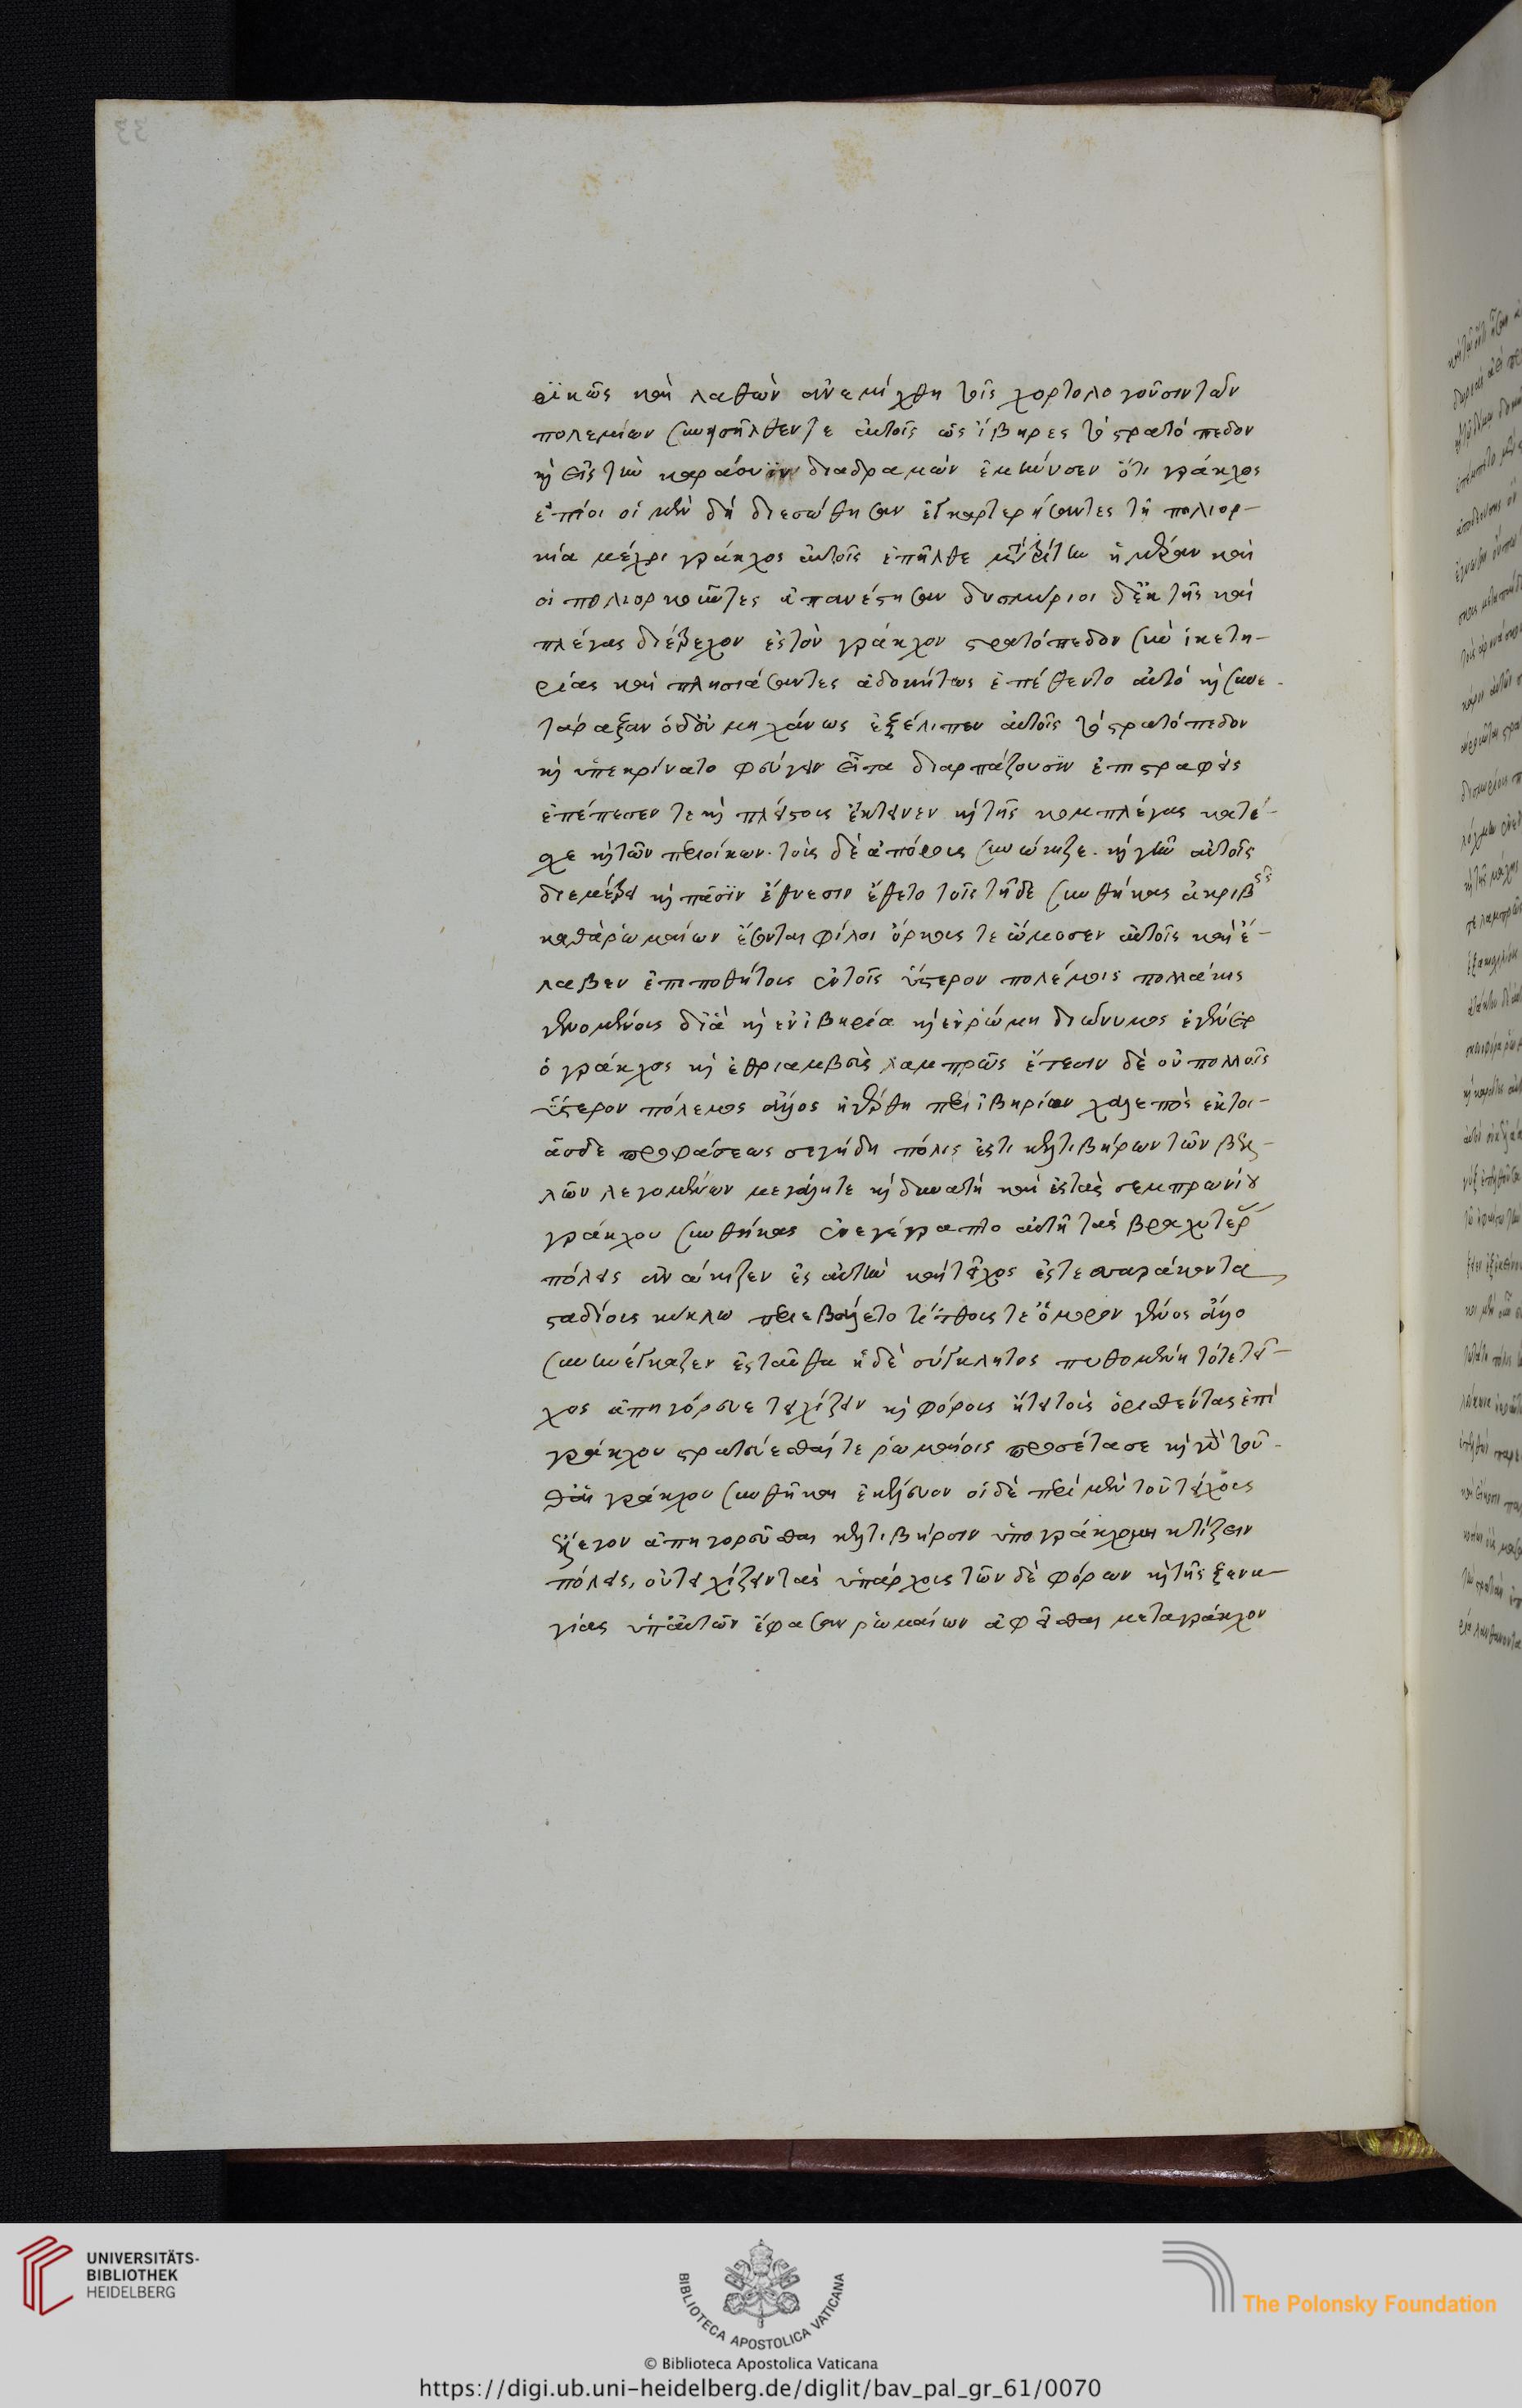 εϊκῶς καὶ λαθὼν ἀνεμίχθη τοῖς χορτολογοῦσιν τῶν
πολεμίων συνησῆλθεν τε αὐτοῖς ὡς ἴβηρες τὸ στρατόπεδον
καὶ εἰς τὴν καράουϊν διαδραμὼν ἐμήνυσεν ὅτι γράκχος
ἐπίοι οἱ μὲν δὴ διεσώθησαν ἐγκαρτερήσαντες τῇ πολιορ-
κία μέχρι γράκχος αὐτοῖς ἐπῆλθε μετὰ τρίτην ἡμέραν καὶ
οἱ πολιορκοῦντες ἀπανέστησαν δυσμύριοι δ' ἐκ τῆς καὶ
πλέγας διέτρεχον ἐς τὸν γράκχον στρατόπεδον σὺν ἱκετη-
ρίας καὶ πλησιάσαντες ἀδοκήτως ἐπέθεντο αὐτό καὶ συνε-
τάραξαν ὁ δ' εὐμηχάνως ἐξέλιπεν αὐτοῖς τὸ στρατόπεδον
καὶ ὑπεκρίνατο φεύγειν εἶτα διαρπάζουσϊν ἐπιστραφεὶς
ἐπέπεσεν τε καὶ πλείστους ἔκτεινεν καὶ τῆς κομπλέγας κατέ-
σχε καὶ τῶν περιοίκων. τοὺς δὲ ἀπόρους συνώκιζε. καὶ γῆν αὐτοῖς
διεμέτρει καὶ πᾶσϊν ἔθνεσιν ἔθετο τοῖς τῆδε συνθήκας ἀκριβεῖς
καθὰ ῥωμαίων ἔσονται φίλοι ὅρκους τε ὤμοσεν αὐτοῖς καὶ ἔ-
λαβεν ἐπιποθήτους ἐν τοῖς ὕστερον πολέμοις πολλάκις
γενομένους διὰ καὶ ἐν ἰβηρία καὶ ἐν ῥώμη διώνυμος ἐγένετο
ὁ γράκχος καὶ ἐθριάμβευσε λαμπρῶς ἔτεσιν δὲ οὐ πολλοῖς
ὕστερον πόλεμος ἄλλος ἠγέρθη περὶ ἰβηρίαν χαλεπὸς ἐκ τοι-
ᾶσδε προφάσεως σεγήδη πόλις ἐστὶ κελτιβήρων τῶν βελ-
λῶν λεγομένων μεγάλη τε καὶ δυνατὴ καὶ ἐς τὰς σεμπρωνίου
γράκχου συνθήκας ἐνεγέγραπτο αὐτῆ τὰς βραχυτέρ
πόλεις ἀνώκιζεν ἐς αὐτὴν καὶ τεῖχος ἐς τεσσαράκοντα
σταδίους κύκλω περιεβάλλετο τίτθους τε ὅμορον γένος ἄλλο
συνηνέγκαζεν ἐς ταῦτα ἡ δὲ σύγκλητος πυθομένη τό τε τεῖ-
χος ἀπηγόρευε τειχίζειν καὶ φόρους ᾔτει τοὺς ὁρισθέντας ἐπὶ
γράκχου στρατεύεσθαί τε ῥωμαίοις προσέτασσε καὶ γὰρ τοῦ-
θ' αἱ γράκχου συνθῆκαι ἐκέλευον οἱ δὲ περὶ μὲν τοῦ τείχους
ἔλεγον ἀπηγορεῦσθαι κελτίβηρσιν ὑπὸ γράκχου μὴ κτίζειν
πόλεις, οὐ τειχίζειν τὰς ὑπάρχους τῶν δὲ φόρων καὶ τῆς ξενα-
γίας ὑπ' αὐτῶν ἔφασαν ῥωμαίων ἀφεῖσθαι μετὰ γράκχον
33
UNIVERSITÄTS-
BIBLIOTHEK
HEIDELBERG
BIBLIOTECA APOSTOLICA VATICANA
The Polonsky Foundation
© Biblioteca Apostolica Vaticana
https://digi.ub.uni-heidelberg.de/diglit/bav_pal_gr_61/0070